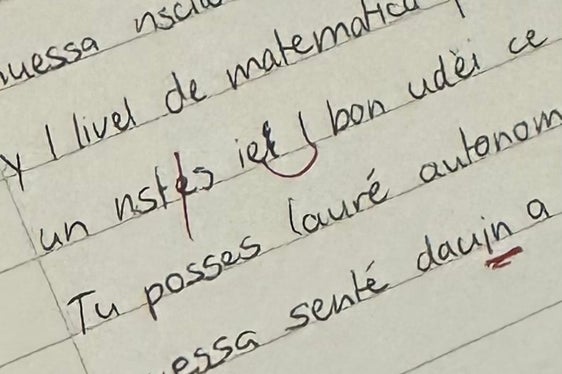 uessa nscia
y l livel de matematica
un nstés iet l bon udëi ce
Tu posses lauré autonom
essa senté dauin a